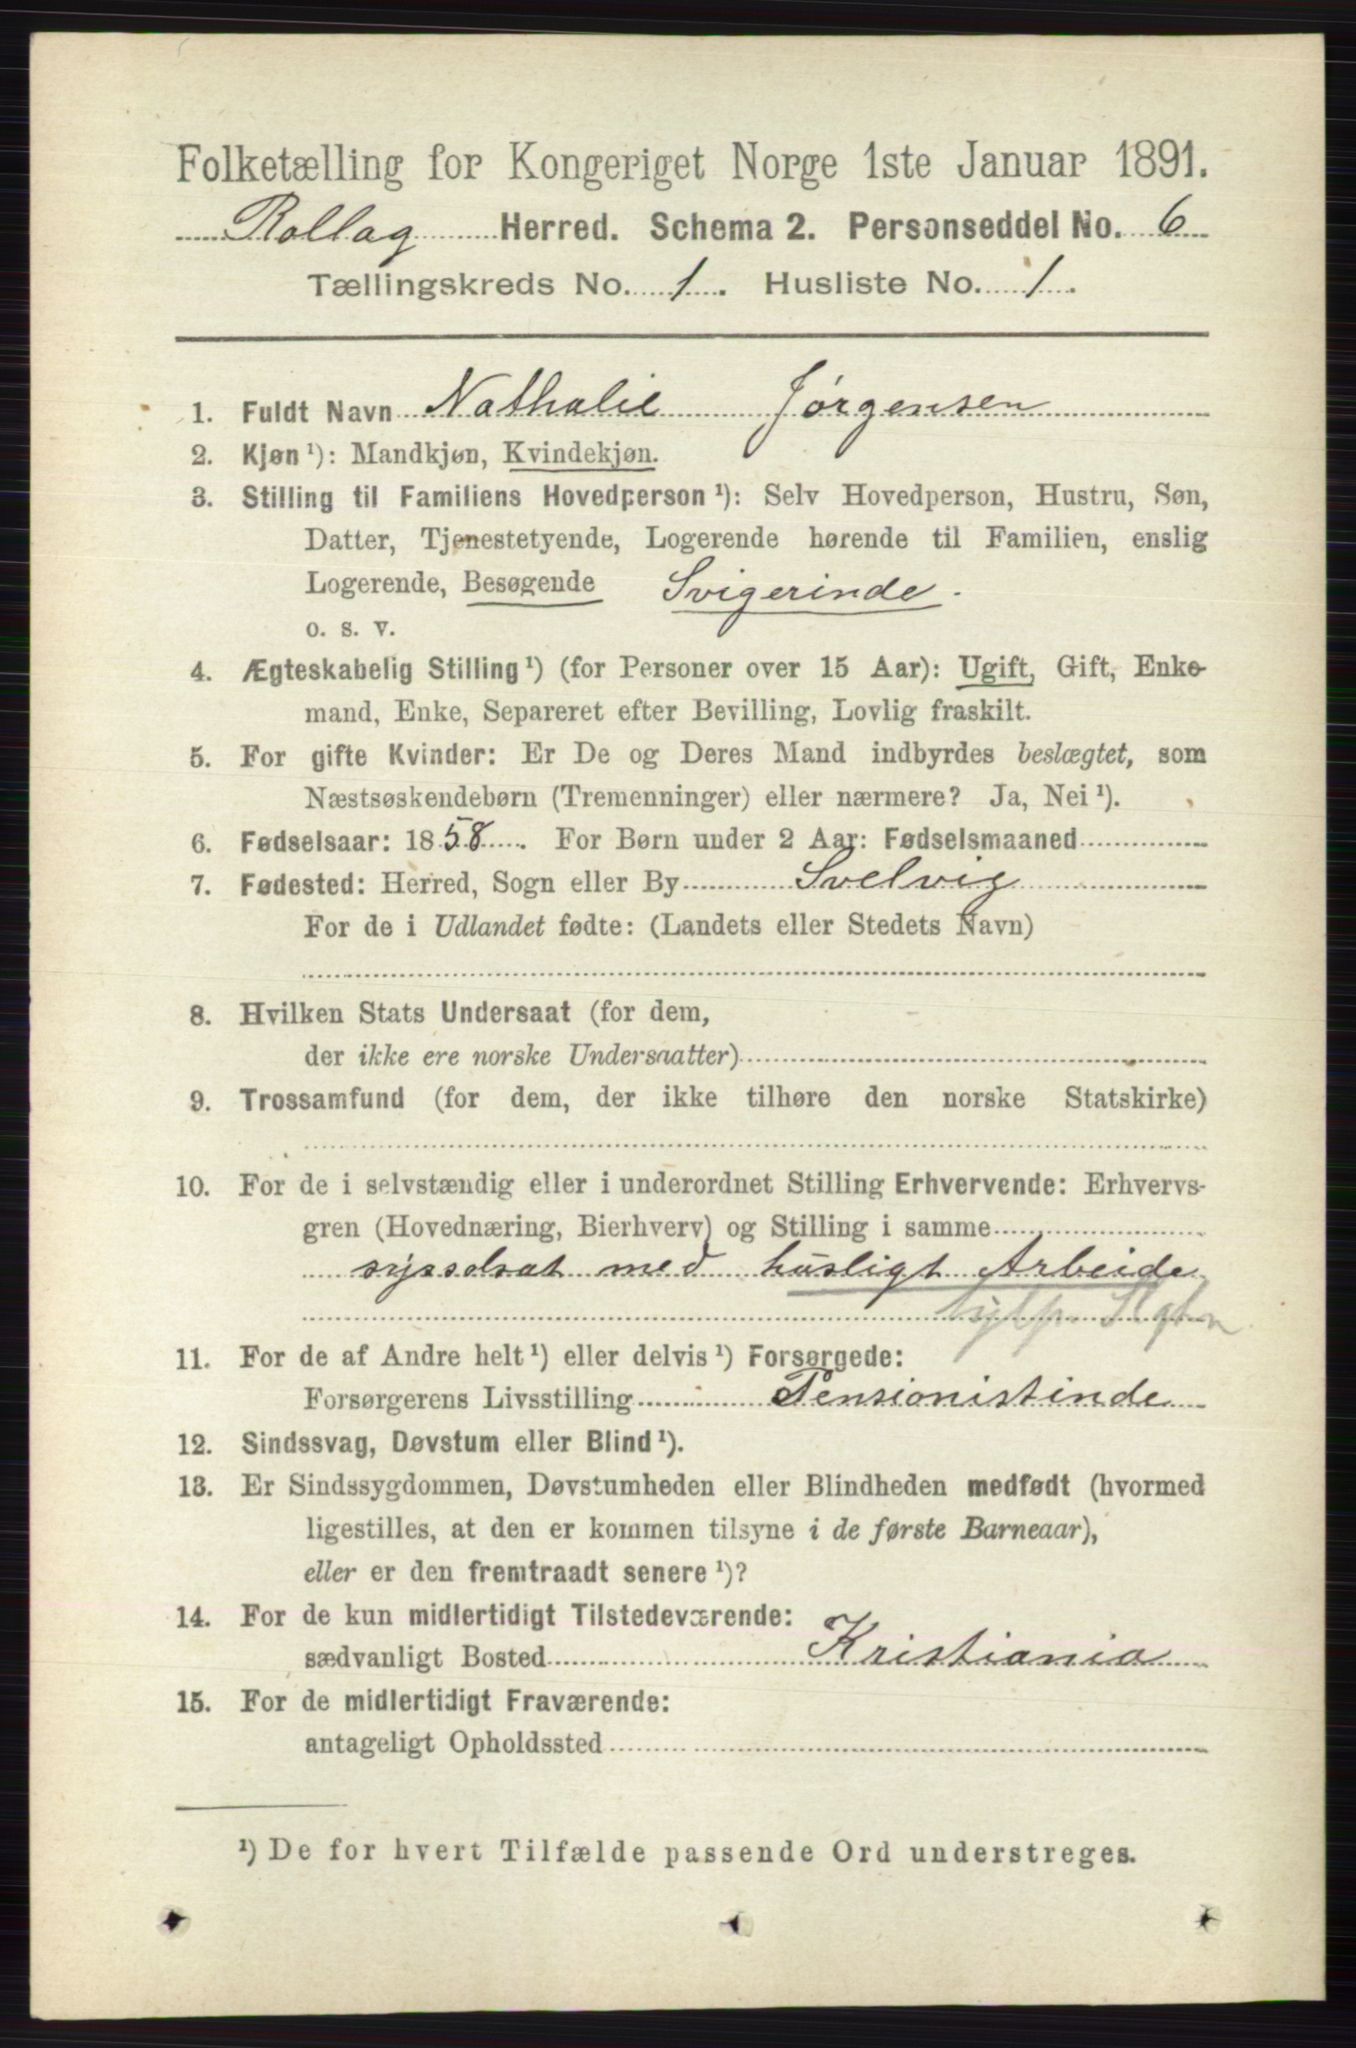 Folketælling for Kongeriget Norge 1ste Januar 1891.
Rollag Herred. Schema 2. Personseddel No. 6
Tællingskreds No. 1. Husliste No. 1.
1. Fuldt Navn Nathalie Jørgensen
2. Kjøn ¹): Mandkjøn, Kvindekjøn.
3. Stilling til Familiens Hovedperson ¹): Selv Hovedperson, Hustru, Søn,
Datter, Tjenestetyende, Logerende hørende til Familien, enslig
Logerende, Besøgende Svigerinde.
o. s. v.
4. Ægteskabelig Stilling ¹) (for Personer over 15 Aar): Ugift, Gift, Enke-
mand, Enke, Separeret efter Bevilling, Lovlig fraskilt.
5. For gifte Kvinder: Er De og Deres Mand indbyrdes beslægtet, som
Næstsøskendebørn (Tremenninger) eller nærmere? Ja, Nei ¹).
6. Fødselsaar: 1858. For Børn under 2 Aar: Fødselsmaaned
7. Fødested: Herred, Sogn eller By Svelvig
For de i Udlandet fødte: (Landets eller Stedets Navn)
8. Hvilken Stats Undersaat (for dem,
der ikke ere norske Undersaatter)
9. Trossamfund (for dem, der ikke tilhøre den norske Statskirke)
10. For de i selvstændig eller i underordnet Stilling Erhvervende: Erhvervs-
gren (Hovednæring, Bierhverv) og Stilling i samme
sysselsat med husligt Arbeide
hjlp.
11. For de af Andre helt ¹) eller delvis ¹) Forsørgede:
Forsørgerens Livsstilling Pensionistinde
12. Sindssvag, Døvstum eller Blind ¹).
13. Er Sindssygdommen, Døvstumheden eller Blindheden medfødt (hvormed
ligestilles, at den er kommen tilsyne i de første Barneaar),
eller er den fremtraadt senere ¹)?
14. For de kun midlertidigt Tilstedeværende:
sædvanligt Bosted Kristiania
15. For de midlertidigt Fraværende:
antageligt Opholdssted
¹) De for hvert Tilfælde passende Ord understreges.